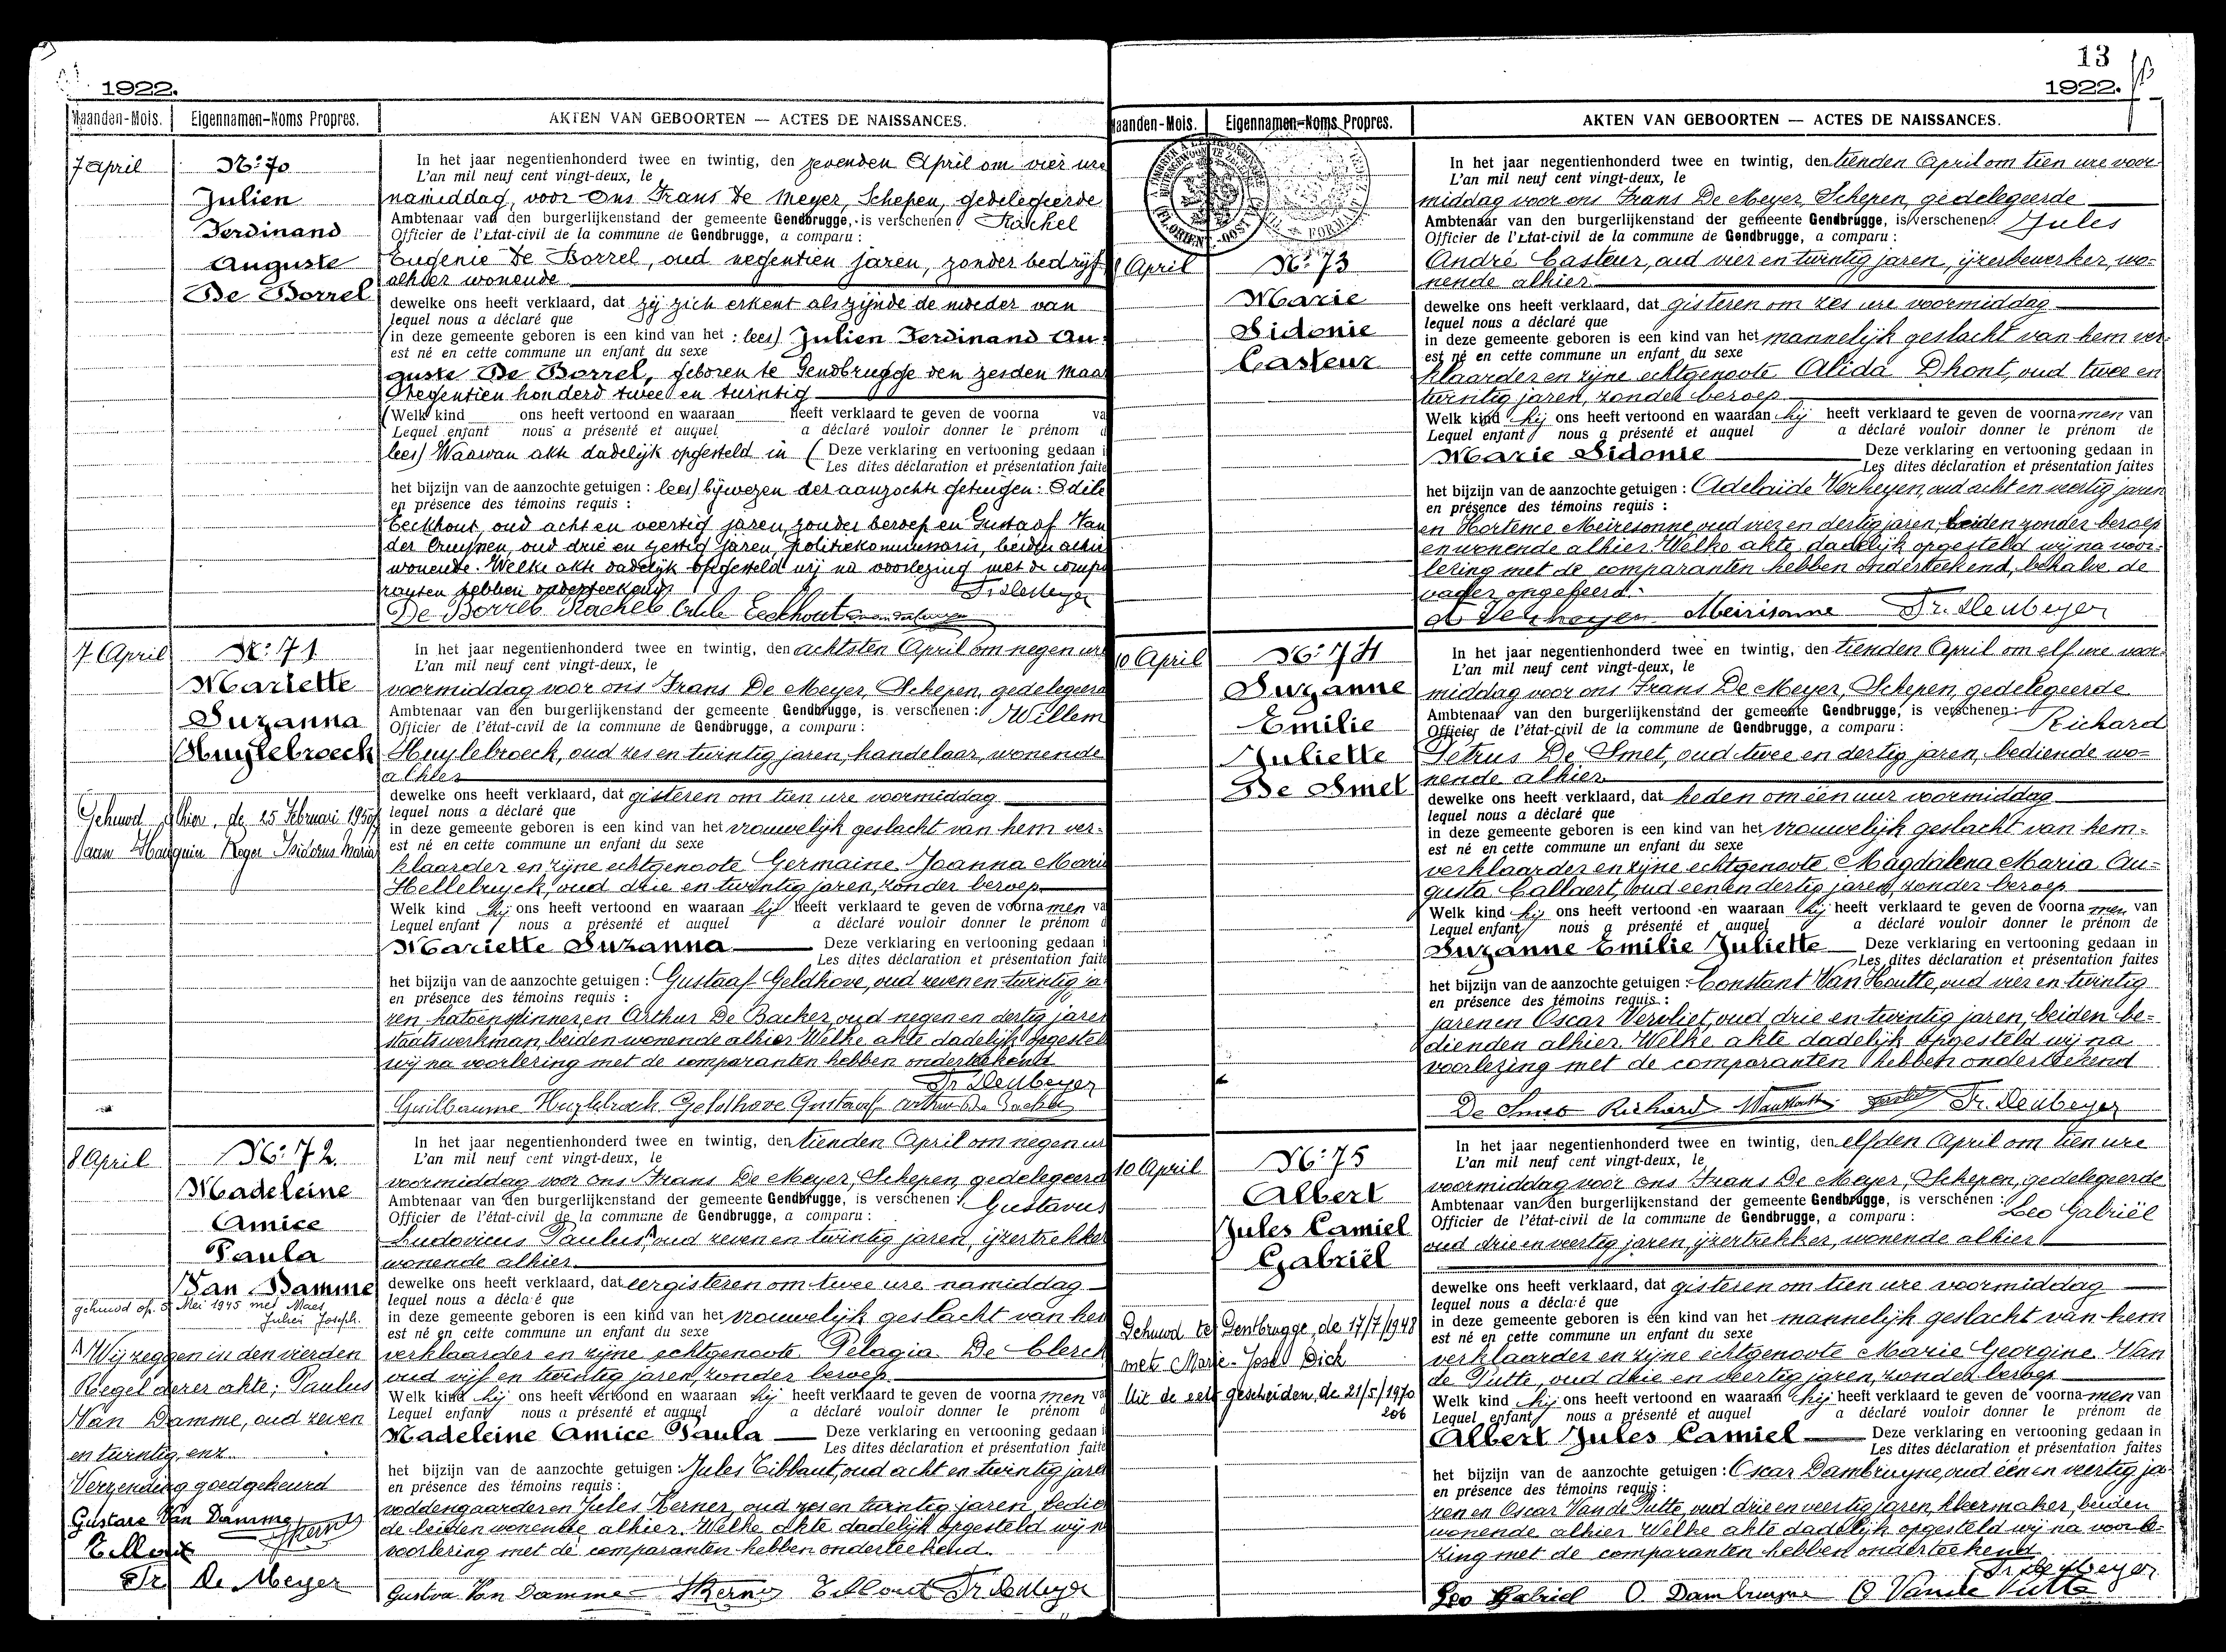 1922.
Maanden-Mois.
Eigennamen-Noms Propres.
AKTEN VAN GEBOORTEN — ACTES DE NAISSANCES.
7 April
No: 70
Julien
Ferdinand
Auguste
De Borrel
In het jaar negentienhonderd twee en twintig, den zevenden April om vier ure
L'an mil neuf cent vingt-deux, le
namiddag, voor ons Frans De Meyer, Schepen, gedelegeerde
Ambtenaar van den burgerlijkenstand der gemeente Gendbrugge, is verschenen Rachel
Officier de l'Etat-civil de la commune de Gendbrugge, a comparu :
Eugenie De Borrel, oud negentien jaren, zonder bedrijf
alhier wonende
dewelke ons heeft verklaard, dat zij zich erkent als zijnde de moeder van
lequel nous a déclaré que
(in deze gemeente geboren is een kind van het : lees) Julien Ferdinand Au-
est né en cette commune un enfant du sexe
guste De Borrel, geboren te Gendbrugge den zesden Maa
negentien honderd twee en twintig
(Welk kind ons heeft vertoond en waaraan heeft verklaard te geven de voorna va
Lequel enfant nous a présenté et auquel a déclaré vouloir donner le prénom d
lees) Waarvan akte dadelijk opgesteld in ( Deze verklaring en vertooning gedaan i
Les dites déclaration et présentation faite
het bijzin van de aanzochte getuigen : lees) bijwezen der aanzochte getuigen: Odile
en présence des témoins requis :
Eeckhout, oud acht en veertig jaren, zonder beroep en Gustaaf Van
der Cruyssen, oud drie en zestig jaren, politiekommissaris, beiden alhier
wonende. Welke akte dadelijk opgesteld wij na voorlezing met de compa
ranten hebben onderteekend
Fr. De Meyer
De Borrel Rachel Odile Eeckhout
7 April
No: 71
Mariette
Suzanna
Huylebroeck
Gehuwd alhier, de 25 Februari 1950
aan Hauquin Roger Isidorus Maria
In het jaar negentienhonderd twee en twintig, den achtsten April om negen ure
L'an mil neuf cent vingt-deux, le
voormiddag voor ons Frans De Meyer, Schepen, gedelegeerd
Ambtenaar van den burgerlijkenstand der gemeente Gendbrugge, is verschenen : Willem
Officier de l'état-civil de la commune de Gendbrugge, a comparu :
Huylebroeck, oud zes en twintig jaren, handelaar, wonende
alhier
dewelke ons heeft verklaard, dat gisteren om tien ure voormiddag
lequel nous a déclaré que
in deze gemeente geboren is een kind van het vrouwelijk geslacht van hem ver-
est né en cette commune un enfant du sexe
klaarder en zijne echtgenoote Germaine Joanna Marie
Hellebuyck, oud drie en twintig jaren, zonder beroep
Welk kind hij ons heeft vertoond en waaraan hij heeft verklaard te geven de voornamen va
Lequel enfant nous a présenté et auquel a déclaré vouloir donner le prénom d
Mariette Suzanna Deze verklaring en vertooning gedaan i
Les dites déclaration et présentation faite
het bijzin van de aanzochte getuigen : Gustaaf Geldhove, oud zeven en twintig ja
en présence des témoins requis :
ren, katoenspinner, en Arthur De Backer, oud negen en dertig jaren
staatswerkman, beiden wonende alhier Welke akte dadelijk opgesteld
wij na voorlezing met de comparanten hebben onderteekend
Fr De Meyer
Guillaume Huylebroeck Geldhove Gustaaf Arthur De Backer
8 April
No: 72
Madeleine
Amice
Paula
Van Damme
gehuwd op 5 Mei 1945 met Maes
Julien Joseph.
Wij zeggen in den vierden
Regel dezer akte; Paulus
Van Damme, oud zeven
en twintig, enz..
Verzending goedgekeurd
Gustave Van Damme
Fr De Meyer
In het jaar negentienhonderd twee en twintig, den tienden April om negen ur
L'an mil neuf cent vingt-deux, le
voormiddag voor ons Frans De Meyer, Schepen, gedelegeerd
Ambtenaar van den burgerlijkenstand der gemeente Gendbrugge, is verschenen : Gustavus
Officier de l'état-civil de la commune de Gendbrugge, a comparu :
Ludovicus Paulus, oud zeven en twintig jaren, ijzertrekker
wonende alhier
dewelke ons heeft verklaard, dat eergisteren om twee ure namiddag
lequel nous a déclaré que
in deze gemeente geboren is een kind van het vrouwelijk geslacht van hem
est né en cette commune un enfant du sexe
verklaarder en zijne echtgenoote Pelagia De Clerck
oud vijf en twintig jaren, zonder beroep
Welk kind hij ons heeft vertoond en waaraan hij heeft verklaard te geven de voornamen va
Lequel enfant nous a présenté et auquel a déclaré vouloir donner le prénom d
Madeleine Amice Paula Deze verklaring en vertooning gedaan i
Les dites déclaration et présentation faite
het bijzin van de aanzochte getuigen : Jules Tibbaut, oud acht en twintig jaren
en présence des témoins requis :
voddengaarder en Jules Kerner, oud zes en twintig jaren, bedien
de beiden wonende alhier. Welke akte dadelijk opgesteld wij n
voorlezing met de comparanten hebben onderteekend.
Gustva Van Damme Fr De Meyer
13
1922.
Maanden-Mois.
Eigennamen-Noms Propres.
AKTEN VAN GEBOORTEN — ACTES DE NAISSANCES.
April
No: 73
Marie
Sidonie
Casteur
In het jaar negentienhonderd twee en twintig, den tienden April om tien ure voor-
L'an mil neuf cent vingt-deux, le
middag voor ons Frans De Meyer, Schepen, gedelegeerde
Ambtenaar van den burgerlijkenstand der gemeente Gendbrugge, is verschenen Jules
Officier de l'Etat-civil de la commune de Gendbrugge, a comparu :
André Casteur, oud vier en twintig jaren, ijzerbewerker, wo-
nende alhier
dewelke ons heeft verklaard, dat gisteren om zes ure voormiddag
lequel nous a déclaré que
in deze gemeente geboren is een kind van het mannelijk geslacht van hem ver-
est né en cette commune un enfant du sexe
klaarder en zijne echtgenoote Alida Dhont, oud twee en
twintig jaren, zonder beroep
Welk kind hij ons heeft vertoond en waaraan hij heeft verklaard te geven de voornamen van
Lequel enfant nous a présenté et auquel a déclaré vouloir donner le prénom de
Marie Sidonie Deze verklaring en vertooning gedaan in
Les dites déclaration et présentation faites
het bijzin van de aanzochte getuigen : Adelaide Verheyen, oud acht en veertig jaren
en présence des témoins requis :
en Hortence Meiresonne, oud vier en dertig jaren beiden zonder beroep
en wonende alhier Welke akte dadelijk opgesteld wij na voor-
lezing met de comparanten hebben onderteekend, behalve de
vader ongeleerd.
A Verheyen Meirisonne Fr. De Meyer
10 April
No: 74
Suzanne
Emilie
Juliette
De Smet
In het jaar negentienhonderd twee en twintig, den tienden April om elf ure voor-
L'an mil neuf cent vingt-deux, le
middag voor ons Frans De Meyer, Schepen, gedelegeerde
Ambtenaar van den burgerlijkenstand der gemeente Gendbrugge, is verschenen : Richard
Officier de l'état-civil de la commune de Gendbrugge, a comparu :
Petrus De Smet, oud twee en dertig jaren, bediende wo-
nende alhier
dewelke ons heeft verklaard, dat heden om één uur voormiddag
lequel nous a déclaré que
in deze gemeente geboren is een kind van het vrouwelijk geslacht van hem-
est né en cette commune un enfant du sexe
verklaarder en zijne echtgenoote Magdalena Maria Au-
gusta Callaert, oud een en dertig jaren, zonder beroep
Welk kind hij ons heeft vertoond en waaraan hij heeft verklaard te geven de voornamen van
Lequel enfant nous a présenté et auquel a déclaré vouloir donner le prénom de
Suzanne Emilie Juliette Deze verklaring en vertooning gedaan in
Les dites déclaration et présentation faites
het bijzin van de aanzochte getuigen : Constant Van Houtte, oud vier en twintig
en présence des témoins requis :
jaren en Oscar Vervliet, oud drie en twintig jaren, beiden be-
dienden alhier Welke akte dadelijk opgesteld wij na
voorlezing met de comparanten hebben onderteekend
De Smet Richard Fr. De Meyer
10 April
No: 75
Albert
Jules Camiel
Gabriël
Gehuwd te Gentbrugge, de 17/7/1948
met Marie-José Dick
Uit de echt gescheiden, de 21/5/1970
206
In het jaar negentienhonderd twee en twintig, den elfden April om tien ure
L'an mil neuf cent vingt-deux, le
voormiddag voor ons Frans De Meyer, Schepen, gedelegeerde
Ambtenaar van den burgerlijkenstand der gemeente Gendbrugge, is verschenen : Leo Gabriël
Officier de l'état-civil de la commune de Gendbrugge, a comparu :
oud drie en veertig jaren, ijzertrekker, wonende alhier
dewelke ons heeft verklaard, dat gisteren om tien ure voormiddag
lequel nous a déclaré que
in deze gemeente geboren is een kind van het mannelijk geslacht van hem
est né en cette commune un enfant du sexe
verklaarder en zijne echtgenoote Marie Georgine Van
de Putte, oud drie en veertig jaren, zonder beroep
Welk kind hij ons heeft vertoond en waaraan hij heeft verklaard te geven de voornamen van
Lequel enfant nous a présenté et auquel a déclaré vouloir donner le prénom de
Albert Jules Camiel Deze verklaring en vertooning gedaan in
Les dites déclaration et présentation faites
het bijzin van de aanzochte getuigen : Oscar Dambruyne, oud één en veertig ja-
en présence des témoins requis :
ren en Oscar Van de Putte, oud drie en veertig jaren, kleermaker, beiden
wonende alhier Welke akte dadelijk opgesteld wij na voorle-
zing met de comparanten hebben onderteekend
Fr De Meyer
Leo Gabriel O. Dambruyne O Vande Putte